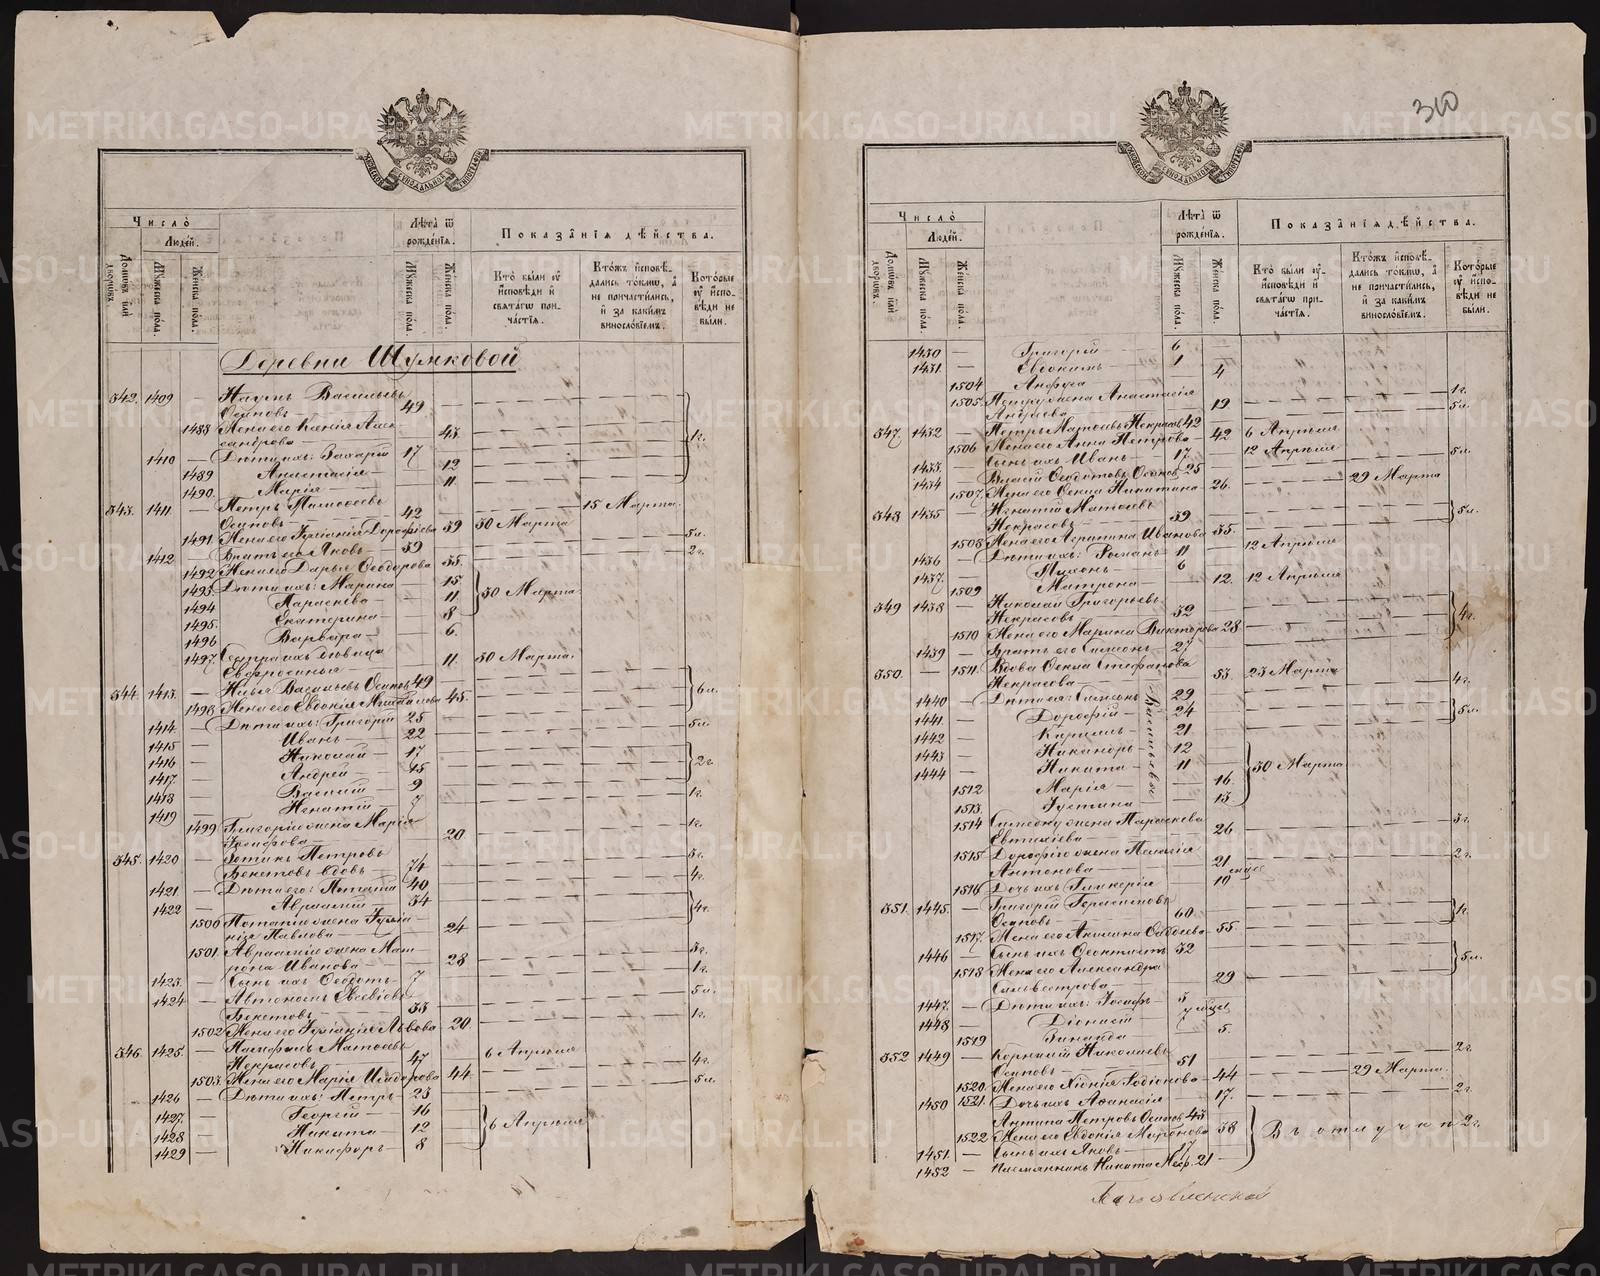 Число
Людей.
Домовъ или дворовъ.
Мужеска пола.
Женска пола.
Лѣта ѿ рожденїѧ.
Мужеска пола.
Женска пола.
Показанїѧ дѣйства.
Кто были оу исповѣди и свѧтагѡ причастїѧ.
Ктожъ исповѣдались токмѡ, а не причастились, и за какимъ винословїемъ.
Которые оу исповѣди не были.
Деревни Шумковой
342. 1409 — Наумъ Васильевъ
Осиповъ — 49
1488 Жена его Ксенія Алек-
сандрова — 43.
1г.
1410 — Дѣти ихъ: Захарій 17
1489 Анастасія — 12
1490. Марія — 11
343. 1411. — Петръ Тимофеевъ
Осиповъ — 42 15 Марта.
1491. Жена его Іуліанія Дорофѣева 39 30 Марта
1412 — Братъ его Яковъ — 39 5л.
1492 Жена его Дарья Ѳеодорова 35. 2г.
1493. Дѣти ихъ: Марина 15.
1494 Параскева — 11 30 Марта.
1495. Екатерина — 8
1496 Варвара — 6.
1497. Сестра ихъ дѣвица
Евфросинья — 11. 30 Марта.
344. 1413. — Илья Васильевъ Осиповъ 49
1498. Жена его Евдокія Михайлова 45. 6л.
1414 — Дѣти ихъ: Григорій 25 5л.
1415 — Иванъ — 22
1416 — Николай — 17
1417 — Андрей — 15 2г.
1418 — Василій — 9
1419 — Игнатій — 7 1г.
1499 Григорія жена Марія
Іосифова — 20 1г.
345. 1420 — Зотикъ Петровъ
Бекетовъ вдовъ — 74 3г.
1421. — Дѣти его: Потапій 40 4г.
1422 — Авраамій — 34
1500 Потапія жена Іуліа-
нія Павлова — 24 4г.
1501. Авраамія жена Мат-
рона Иванова — 28 3г.
1423. — Сынъ ихъ Ѳеодотъ 7 1г.
1424. — Автономъ Евсевіевъ
Бекетовъ — 33 5л.
1502 Жена его Іуліанія Львова 20. 1г.
346. 1425. — Памфилъ Матвеевъ
Некрасовъ — 47 6 Апрѣля
1503. Жена его Марія Исидорова 44 4г.
1426 — Дѣти ихъ: Петръ — 23 5л.
1427. — Георгій — 16
1428 — Никита — 12 6 Апрѣля
1429 — Никифоръ — 8
310
Число
Людей.
Домовъ или дворовъ.
Мужеска пола.
Женска пола.
Лѣта ѿ рожденїѧ.
Мужеска пола.
Женска пола.
Показанїѧ дѣйства.
Кто были оу исповѣди и свѧтагѡ причастїѧ.
Ктожъ исповѣдались токмѡ, а не причастились, и за какимъ винословїемъ.
Которые оу исповѣди не были.
1430 — Григорій — 6
1431. — Евдокимъ — 1
1504 Анфуса — 4
1505. Петру жена Анастасія 1г.
Андреева — 19 5л.
347. 1432 — Петръ Марковъ Некрасовъ 42
1506 Жена его Анна Петрова — 42 6 Апрѣля
1433. — Сынъ ихъ Иванъ — 17 12 Апрѣля
1434 — Власій Ѳеодотовъ Осиповъ 25 5л.
1507. Жена его Ѳекла Никитина 26. 29 Марта
348 1435 — Игнатій Матвеевъ
Некрасовъ — 39
1508 Жена его Агрипина Иванова 35. 5л.
1436 — Дѣти ихъ: Романъ 11 12 Апрѣля
1437. — Тихонъ — 6
1509 Матрона — 12. 12 Апрѣля
349 1438 — Николай Григорьевъ
Некрасовъ — 32
1510 Жена его Марина Викторова 28 4г.
1439 — Братъ его Симеонъ — 27
350. — 1511. Вдова Ѳекла Стефанова
Некрасова — 53. 23 Марта
1440 — Дѣти ея: Симеонъ 29 4г.
1441. — Дорофій — 24
1442 — Кириллъ — 21 5л.
1443 — Никандръ — 12
1444 — Никита — 11
Васильевы
1512 Марія — 16 30 Марта
1513. Іустина — 13
1514 Симеону жена Параскева
Евтихіева — 26 3г.
1515 Дорофію жена Пелагія
Антонова — 21 2г.
1516 Дочь ихъ Гликерія 10 мѣсяц
351. 1445. — Григорій Герасимовъ
Осиповъ — 60
1517. Жена его Акилина 55 1г.
1446 — Сынъ ихъ Ѳеоктистъ 32
1518 Жена его Александра
Сильвестрова — 29 5л.
1447. — Дѣти ихъ: Іосифъ — 5
1448 — Діонисій
1519 Зинаида 5.
352 1449 — Корнилій Николаевъ
Осиповъ — 51 2г.
1520. Жена его Хіонія Родіонова 44 29 Марта.
1450 1521. Дочь ихъ Аѳанасія — 17. 2г.
Антипа Петровъ Осиповъ 43
1522 Жена его Евдокія 38 Въ отлучкѣ 2г.
1451. — Сынъ ихъ Яковъ — 17
1452 — Племянникъ Никита 21
METRIKI.GASO-URAL.RU